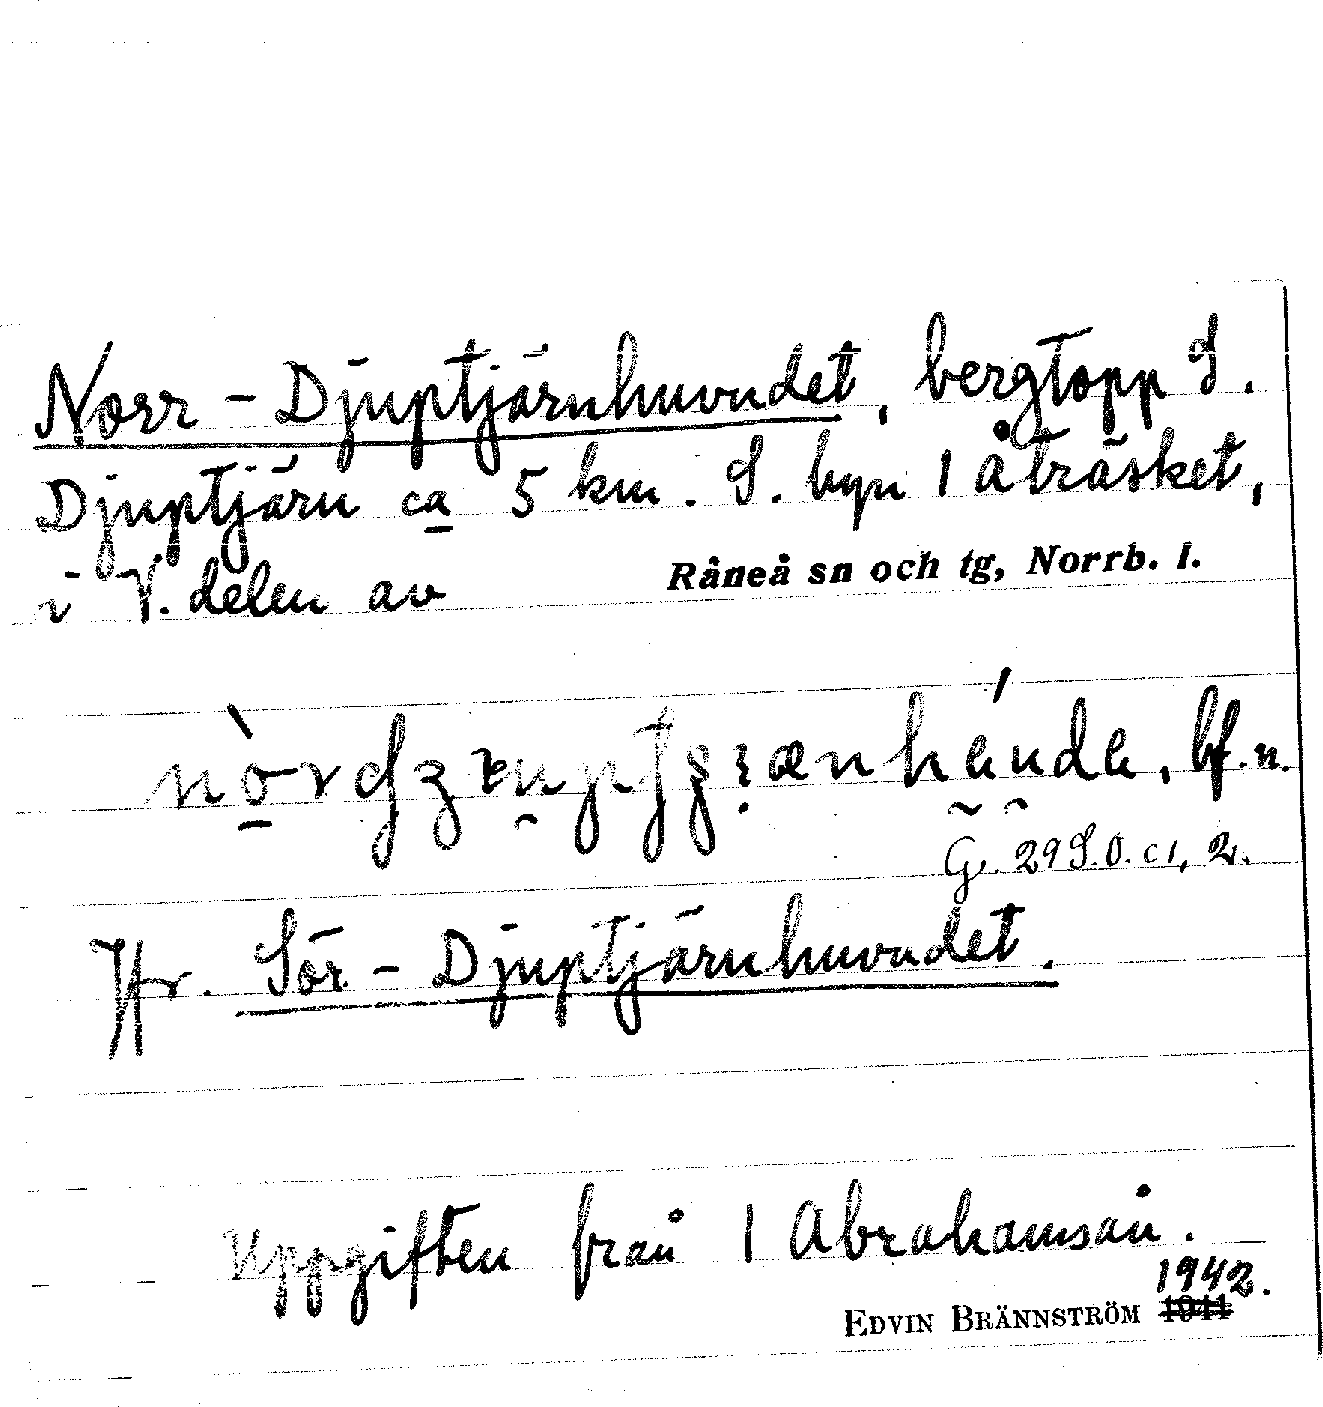 Norr-Djuptjärnhuvudet, bergtopp S.
Djuptjärn ca 5 km. S. byn 1 Åträsket,
i V. delen av Råneå sn och tg, Norrb. l.
bf. n.
G. 29 S.O. c1, 2.
Jfr. Sör-Djuptjärnhuvudet.
Uppgiften från 1 Abrahamsån.
1942.
EDVIN BRÄNNSTRÖM 1941